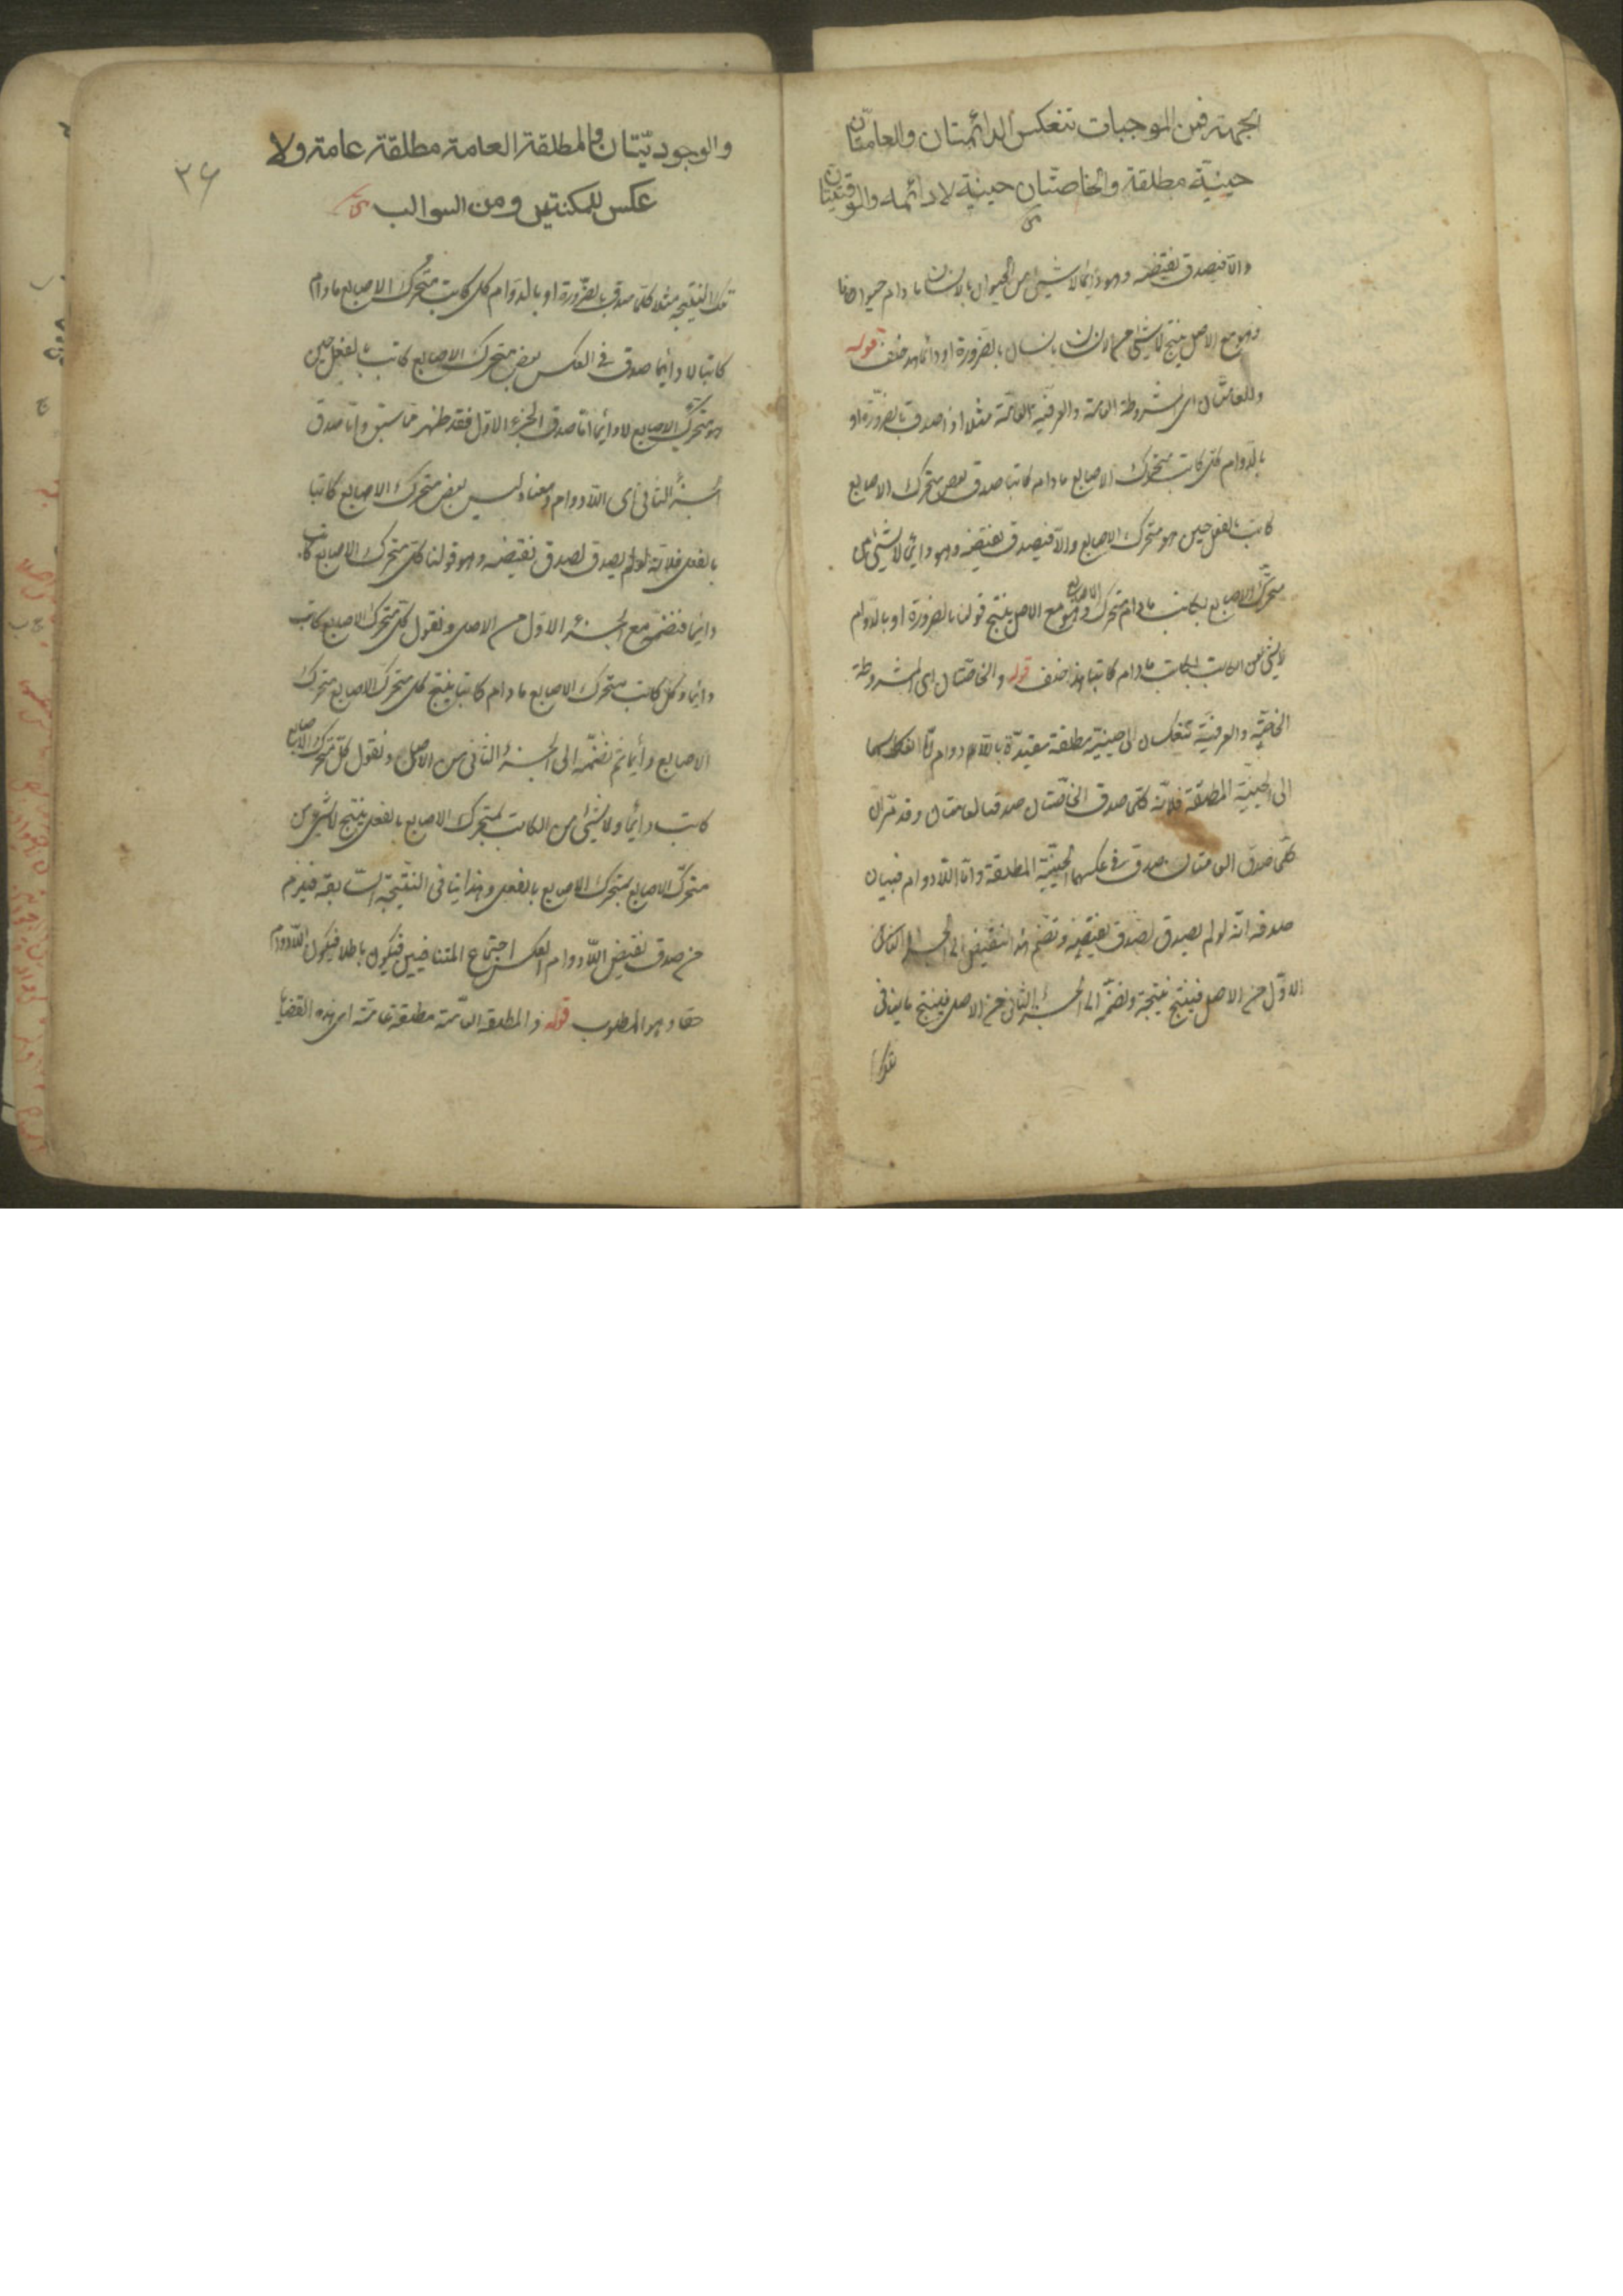 بجهة فمن الموجبات تنعكس الدائمتان والعامتان
حينية مطلقة والخاصتان حينية لا دائمه والوقتيتان
والا فيصدق نقيضه وهو دائما لا شيئ من الحيوان بالانسان ما دام حيوانا
وهو مع الاصل ينتج لا شيئ من الانسان بانسان بالضرورة او دائما هذا خلف قوله
وللعامتان اى المشروطة العامة والعرفية العامة مثلا اذا صدق بالضرورة او
بالدوام كل كاتب متحرك الاصابع ما دام كاتبا صدق بعض متحرك الاصابع
كاتب بالفعل حين هو متحرك الاصابع والا فيصدق نقيضه وهو دائما لا شيئ من
متحرك الاصابع بكاتب ما دام متحرك الاصابع وهو مع الاصل ينتج قولنا بالضرورة او بالدوام
لا شيئ من الكاتب بكاتب ما دام كاتبا هذا خلف قوله والخاصتان اى المشروطة
الخاصة والعرفية تنعكسان الى حينية مطلقة مقيدة باللا دوام اما انعكاسهما
الى الحينية المطلقة فلانه كلما صدق الخاصتان صدقت العامتان وقد مر ان
كلما صدق العامتان صدق فى عكسهما الحينية المطلقة واما اللا دوام فبيان
صدقه انه لو لم يصدق لصدق نقيضه ونضم هذا النقيض الى الجزء
الاول من الاصل فينتج نتيجة ونضمه الى الجزء الثانى من الاصل فينتج ما ينافى
تلك
والوجوديتان والمطلقة العامة مطلقة عامة ولا
٣٦
عكس للمكنتين ومن السوالب
تلك النتيجه مثلا كلما صدق بالضرورة او بالدوام كل كاتب متحرك الاصابع ما دام
كاتبا لا دائما صدق فى العكس بعض متحرك الاصابع كاتب بالفعل حين
هو متحرك الاصابع لا دائما اما صدق الجزء الاول فقد ظهر مما سبق واما صدق
الجزء الثانى اى اللا دوام ومعناه ليس بعض متحرك الاصابع كاتبا
بالفعل فلانه لو لم يصدق لصدق نقيضه وهو قولنا كل متحرك الاصابع كاتب
دائما فنضمه مع الجزء الاول من الاصل ونقول كل متحرك الاصابع كاتب
دائما وكل كاتب متحرك الاصابع ما دام كاتبا ينتج كل متحرك الاصابع متحرك
الاصابع دائما ثم نضمه الى الجزء الثانى من الاصل ونقول كل متحرك الاصابع
كاتب دائما ولا شيئ من الكاتب بمتحرك الاصابع بالفعل ينتج لا شيئ من
متحرك الاصابع بمتحرك الاصابع بالفعل وهذا ينافى النتيجة السابقة فيلزم
من صدق نقيض اللا دوام العكس اجتماع المتنافيين فيكون باطلا فيكون اللا دوام
حقا وهو المطلوب قوله والمطلقة العامة مطلقة عامة اى هذه القضايا